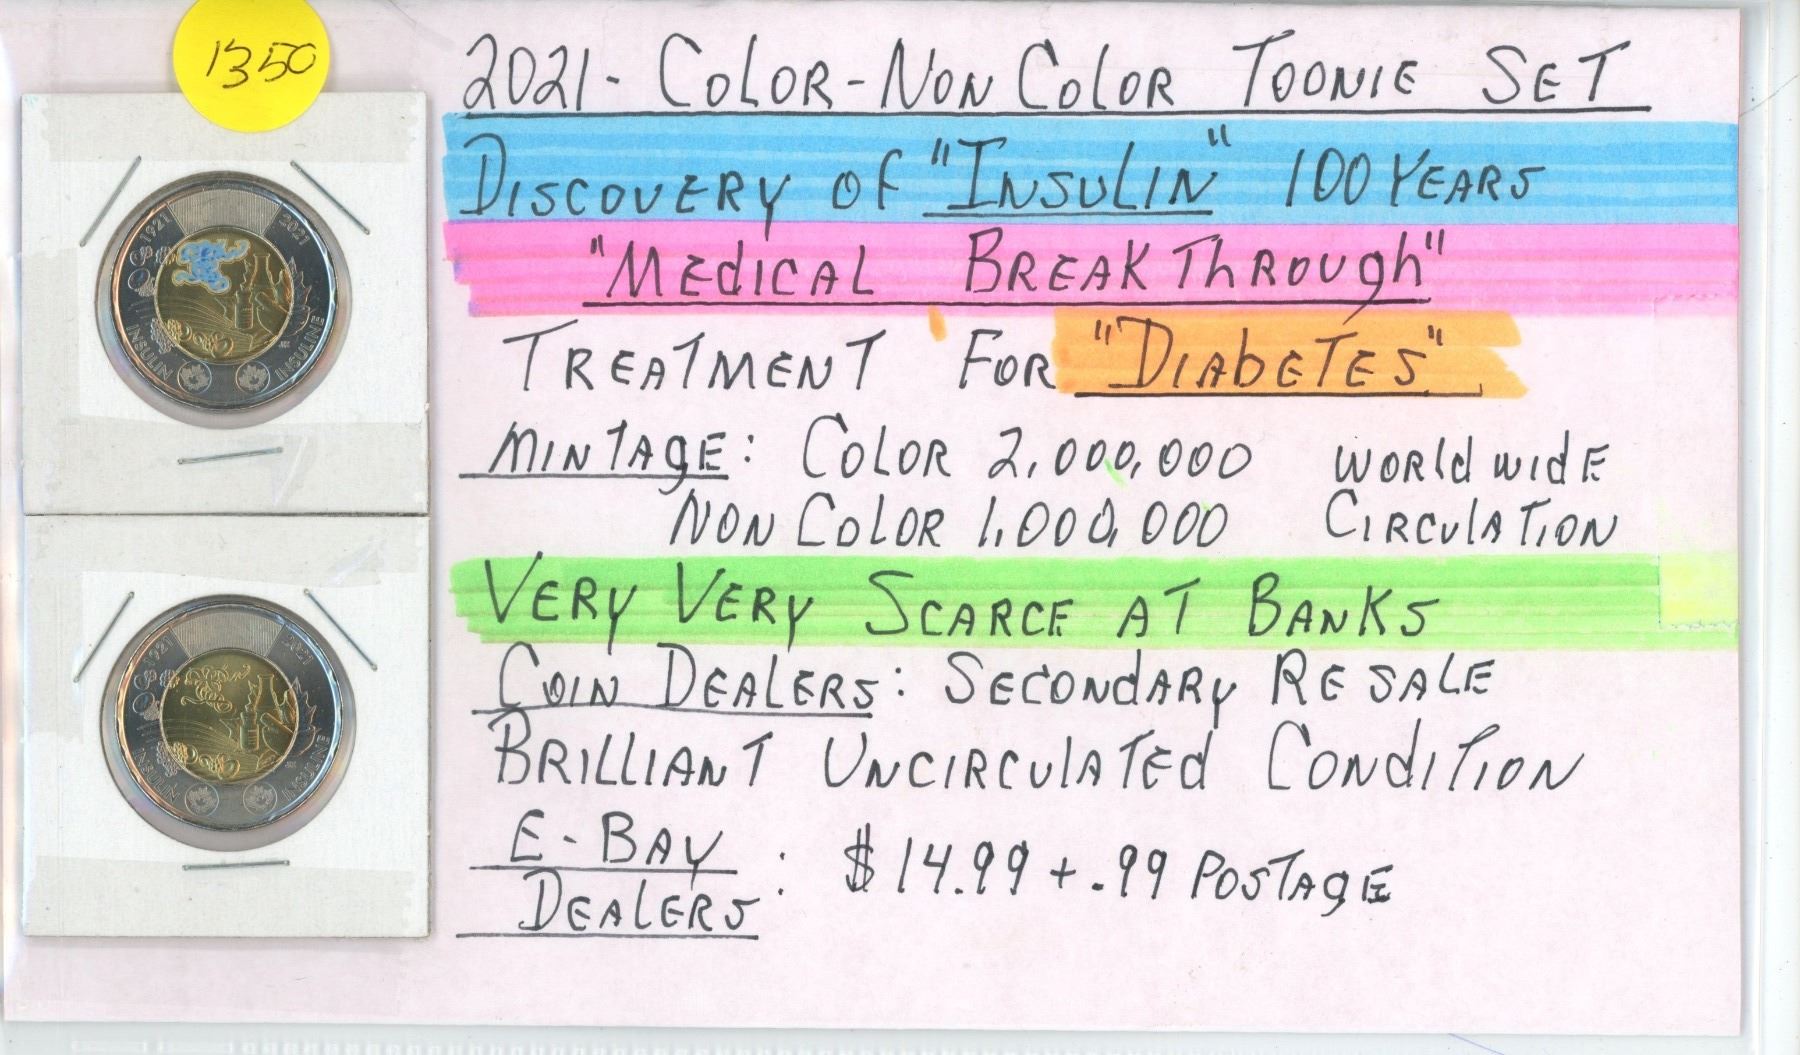 1350
2021 - COLOR - NON COLOR TOONIE SET
DISCOVERY OF "INSULIN" 100 YEARS
"MEDICAL BREAKTHROUGH"
TREATMENT FOR "DIABETES"
MINTAGE: COLOR 2,000,000 WORLD WIDE
NON COLOR 1,000,000 CIRCULATION
VERY VERY SCARCE AT BANKS
COIN DEALERS: SECONDARY RESALE
BRILLIANT UNCIRCULATED CONDITION
E-BAY DEALERS : $14.99 + .99 POSTAGE
1921 2021
INSULIN INSULINE
1921 2021
INSULIN INSULINE